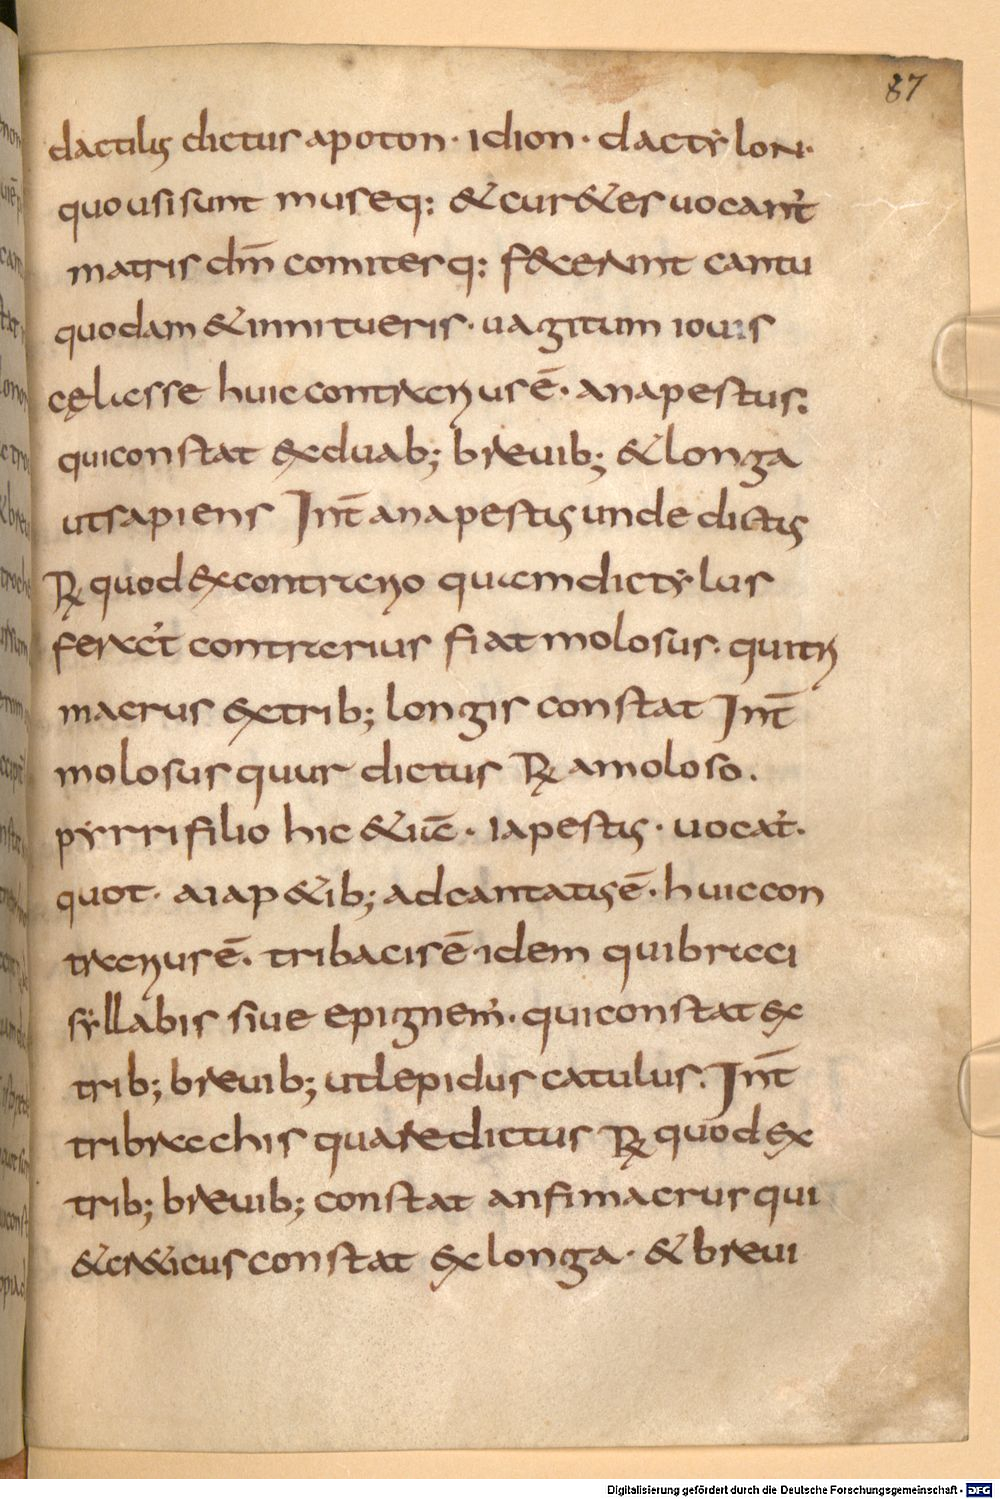 87
dactilis dictus apoton · idion · dactẏlon·
quo usi sunt museq: & cur&es uocant̾
matris dm̄ comitesq: fecerunt cantu
quodam & innitueris · uagitum iouis
cęli esse huic contrarius ē · anapestus:
qui constat ex duab; breuib; & longa
ut sapiens Int̄ anapestis unde dictis
R quod ex contrario quiem dictẏlus
ferat̾ contrarius fiat molosus · quitri
macrus ex trib; longis constat Int̄
molosus quur dictus R a moloso .
pẏrri filio hic & iuē · iapestis · uocat̾·
quot · aiap&ib; adcantatis ē · huic con
trarius ē · tribacis ē idem qui bracci
sẏllabis siue epignem̾ · qui constat ex
trib; breuib; ut lepidus catulus . Int̄
tribracchis quare dictus R quod ex
trib; breuib; constat anfimacrus qui
& cr&icus constat ex longa · & breui
Digitalisierung gefördert durch die Deutsche Forschungsgemeinschaft - DFG